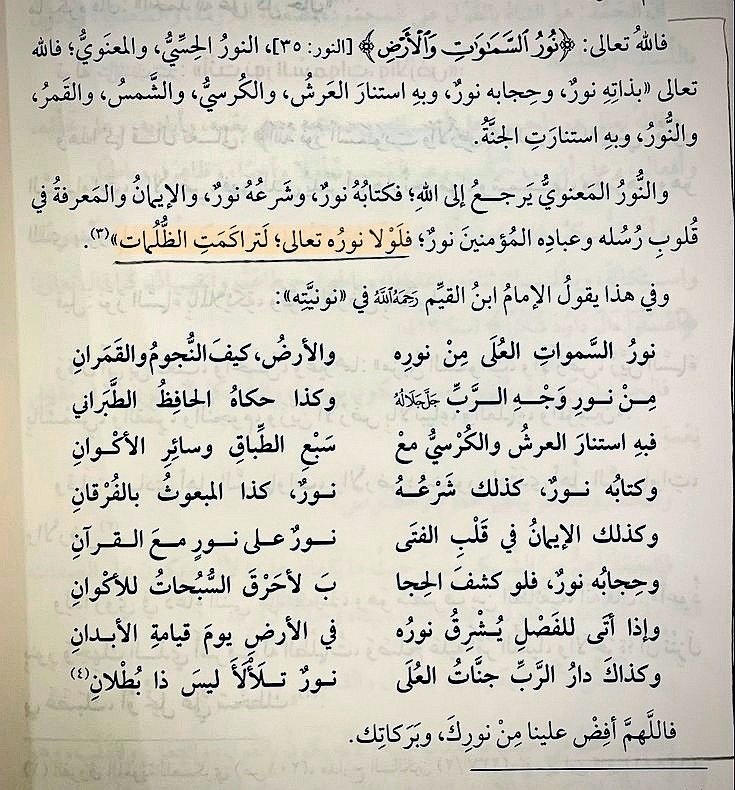 فاللهُ تعالى: ﴿نُورُ ٱلسَّمَٰوَٰتِ وَٱلۡأَرۡضِ﴾ [النور: ٣٥]، النورُ الحسِّيُّ، والمعنَويُّ؛ فالله
تعالى «بذاتِهِ نورٌ، وحِجابه نورٌ، وبهِ استنارَ العَرشُ، والكُرسيُّ، والشَّمسُ، والقَمرُ،
والنُّورُ، وبهِ استنارَتِ الجنَّةُ.
والنُّورُ المَعنويُّ يَرجـعُ إلى اللهِ؛ فكتابُهُ نورٌ، وشَرعُهُ نورٌ، والإيمانُ والمَعرفةُ في
قُلوبِ رُسُله وعبادِه المُؤمنينَ نورٌ؛ فلَوْلا نورُه تعالى؛ لَتراكَمَتِ الظُّلُمات»(٣).
وفي هذا يقولُ الإمامُ ابنُ القيِّم رَحِمَهُ ٱللَّهُ في «نونيَّتِه»:
نورُ السَّمواتِ العُلَى مِنْ نورِه والأرضُ، كيفَ النُّجومُ والقَمَرانِ
مِـنْ نـورِ وَجْـهِ الـرَّبِّ جَلَّ جَلَالُهُ وكذا حكاهُ الحافِظُ الطَّبَراني
فبهِ استنارَ العرشُ والكُرْسيُّ معْ سَبْعِ الطِّباقِ وسائِرِ الأكْـوانِ
وكتابُه نـورٌ، كذلك شَرْعُـهُ نـورٌ، كذا المبعوثُ بالفُرْقانِ
وكذلك الإيمانُ في قَلْبِ الفتَى نـورٌ على نـورٍ معَ القـرآنِ
وحِجابُه نورٌ، فلو كشفَ الحِجا بَ لأحرَقَ السُّبُحاتُ للأكْوانِ
وإذا أتَى للفَصْلِ يُـشْرِقُ نورُه في الأرضِ يومَ قيامةِ الأبـدانِ
وكذاكَ دارُ الرَّبِّ جنَّاتُ العُلَى نـورٌ تـلَألَأَ ليسَ ذا بُطْلانِ(٤)
فاللَّهمَّ أفِضْ علينا مِنْ نورِكَ، وبَرَكاتِك.